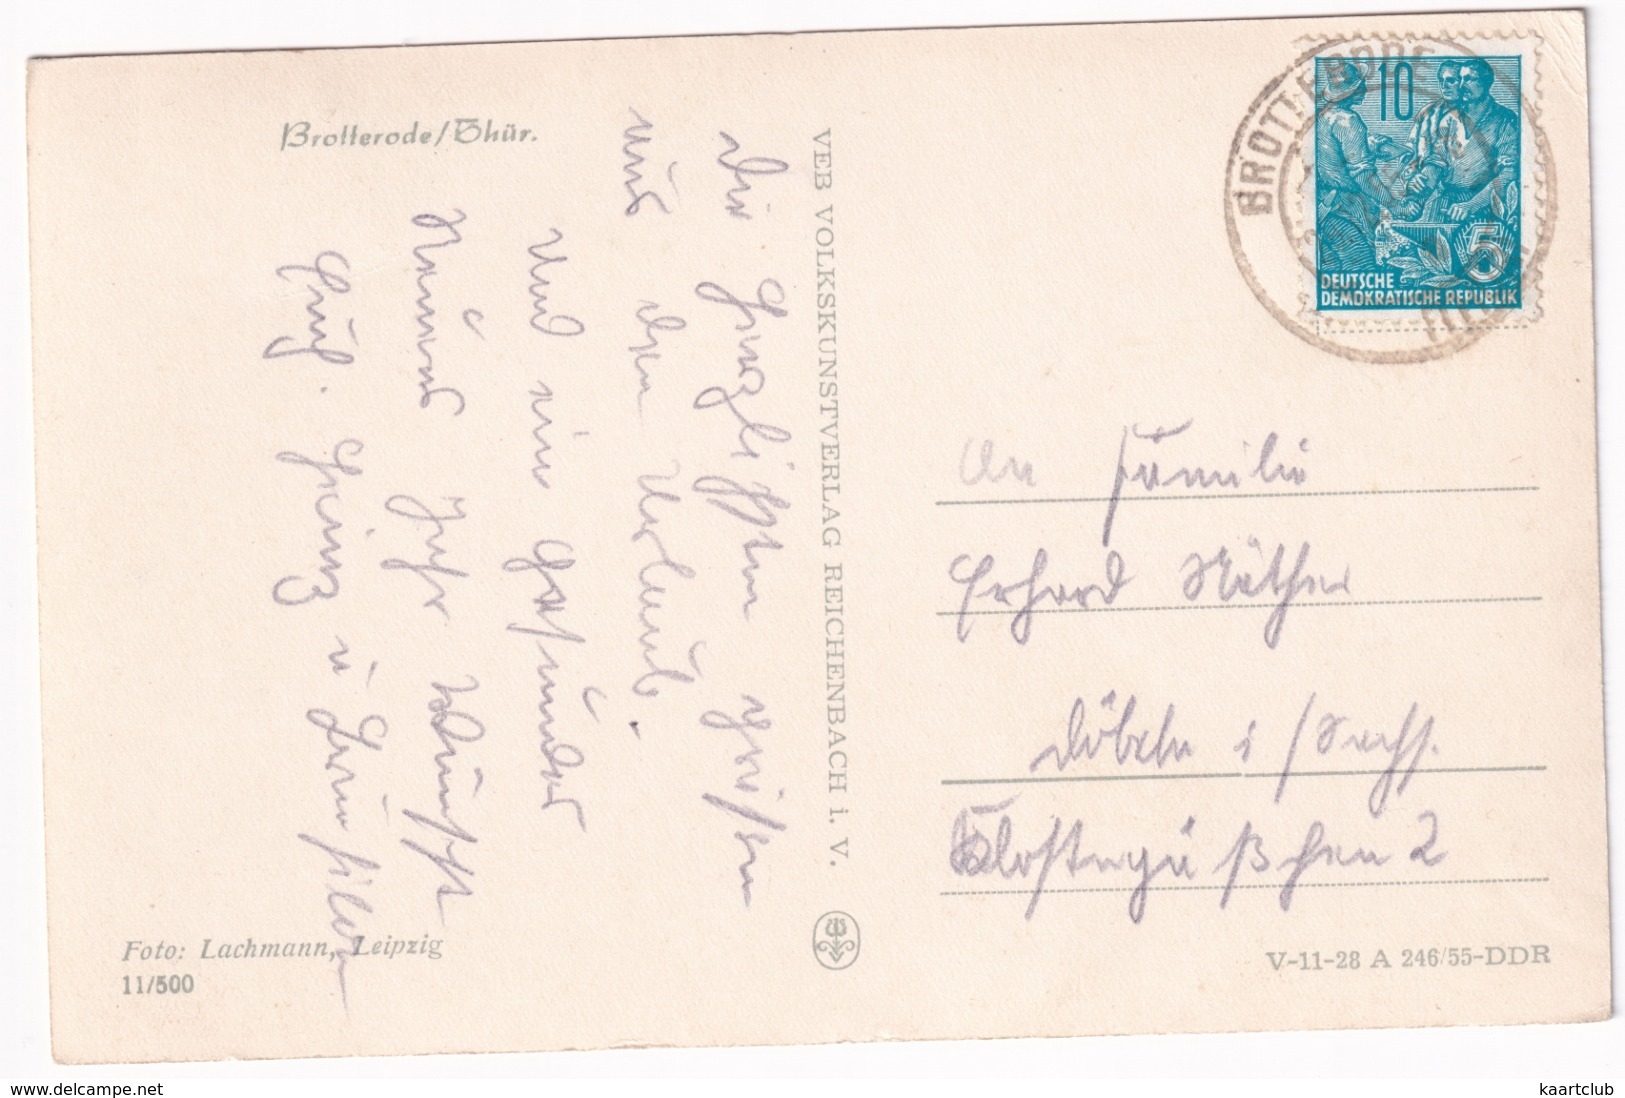 Brotterode/Thür.
Die herzlichsten Grüße
aus dem Urlaub.
Und ein gesundes
Neues Jahr wünscht
Heinz u.
VEB VOLKSKUNSTVERLAG REICHENBACH i. V.
BROTTERODE
10
5
DEUTSCHE
DEMOKRATISCHE REPUBLIK
An Familie
Erhard Näther
Döbeln i/Sachs.
Klostergäßchen 2
Foto: Lachmann, Leipzig
11/500
V-11-28 A 246/55-DDR
www.delcampe.net
kaartclub